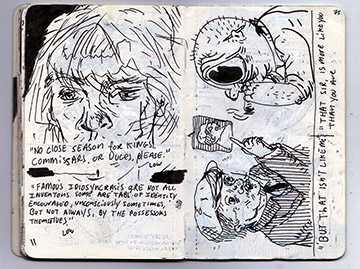 "NO CLOSE SEASON for KINGS,
COMMISSARS, OR DUCES, PLEASE."
LOW
"FAMOUS IDIOSYNCRASIES ARE NOT ALL
INVENTIONS. SOME ARE TABS OF IDENTITY
ENCOURAGED, UNCONSCIOUSLY SOMETIMES,
BUT NOT ALWAYS, BY THE POSSESSORS
THEMSELVES."
LOW
11
"BUT THAT ISN'T LIKE ME." "THAT SIR, IS MORE LIKE YOU
THAN YOU ARE